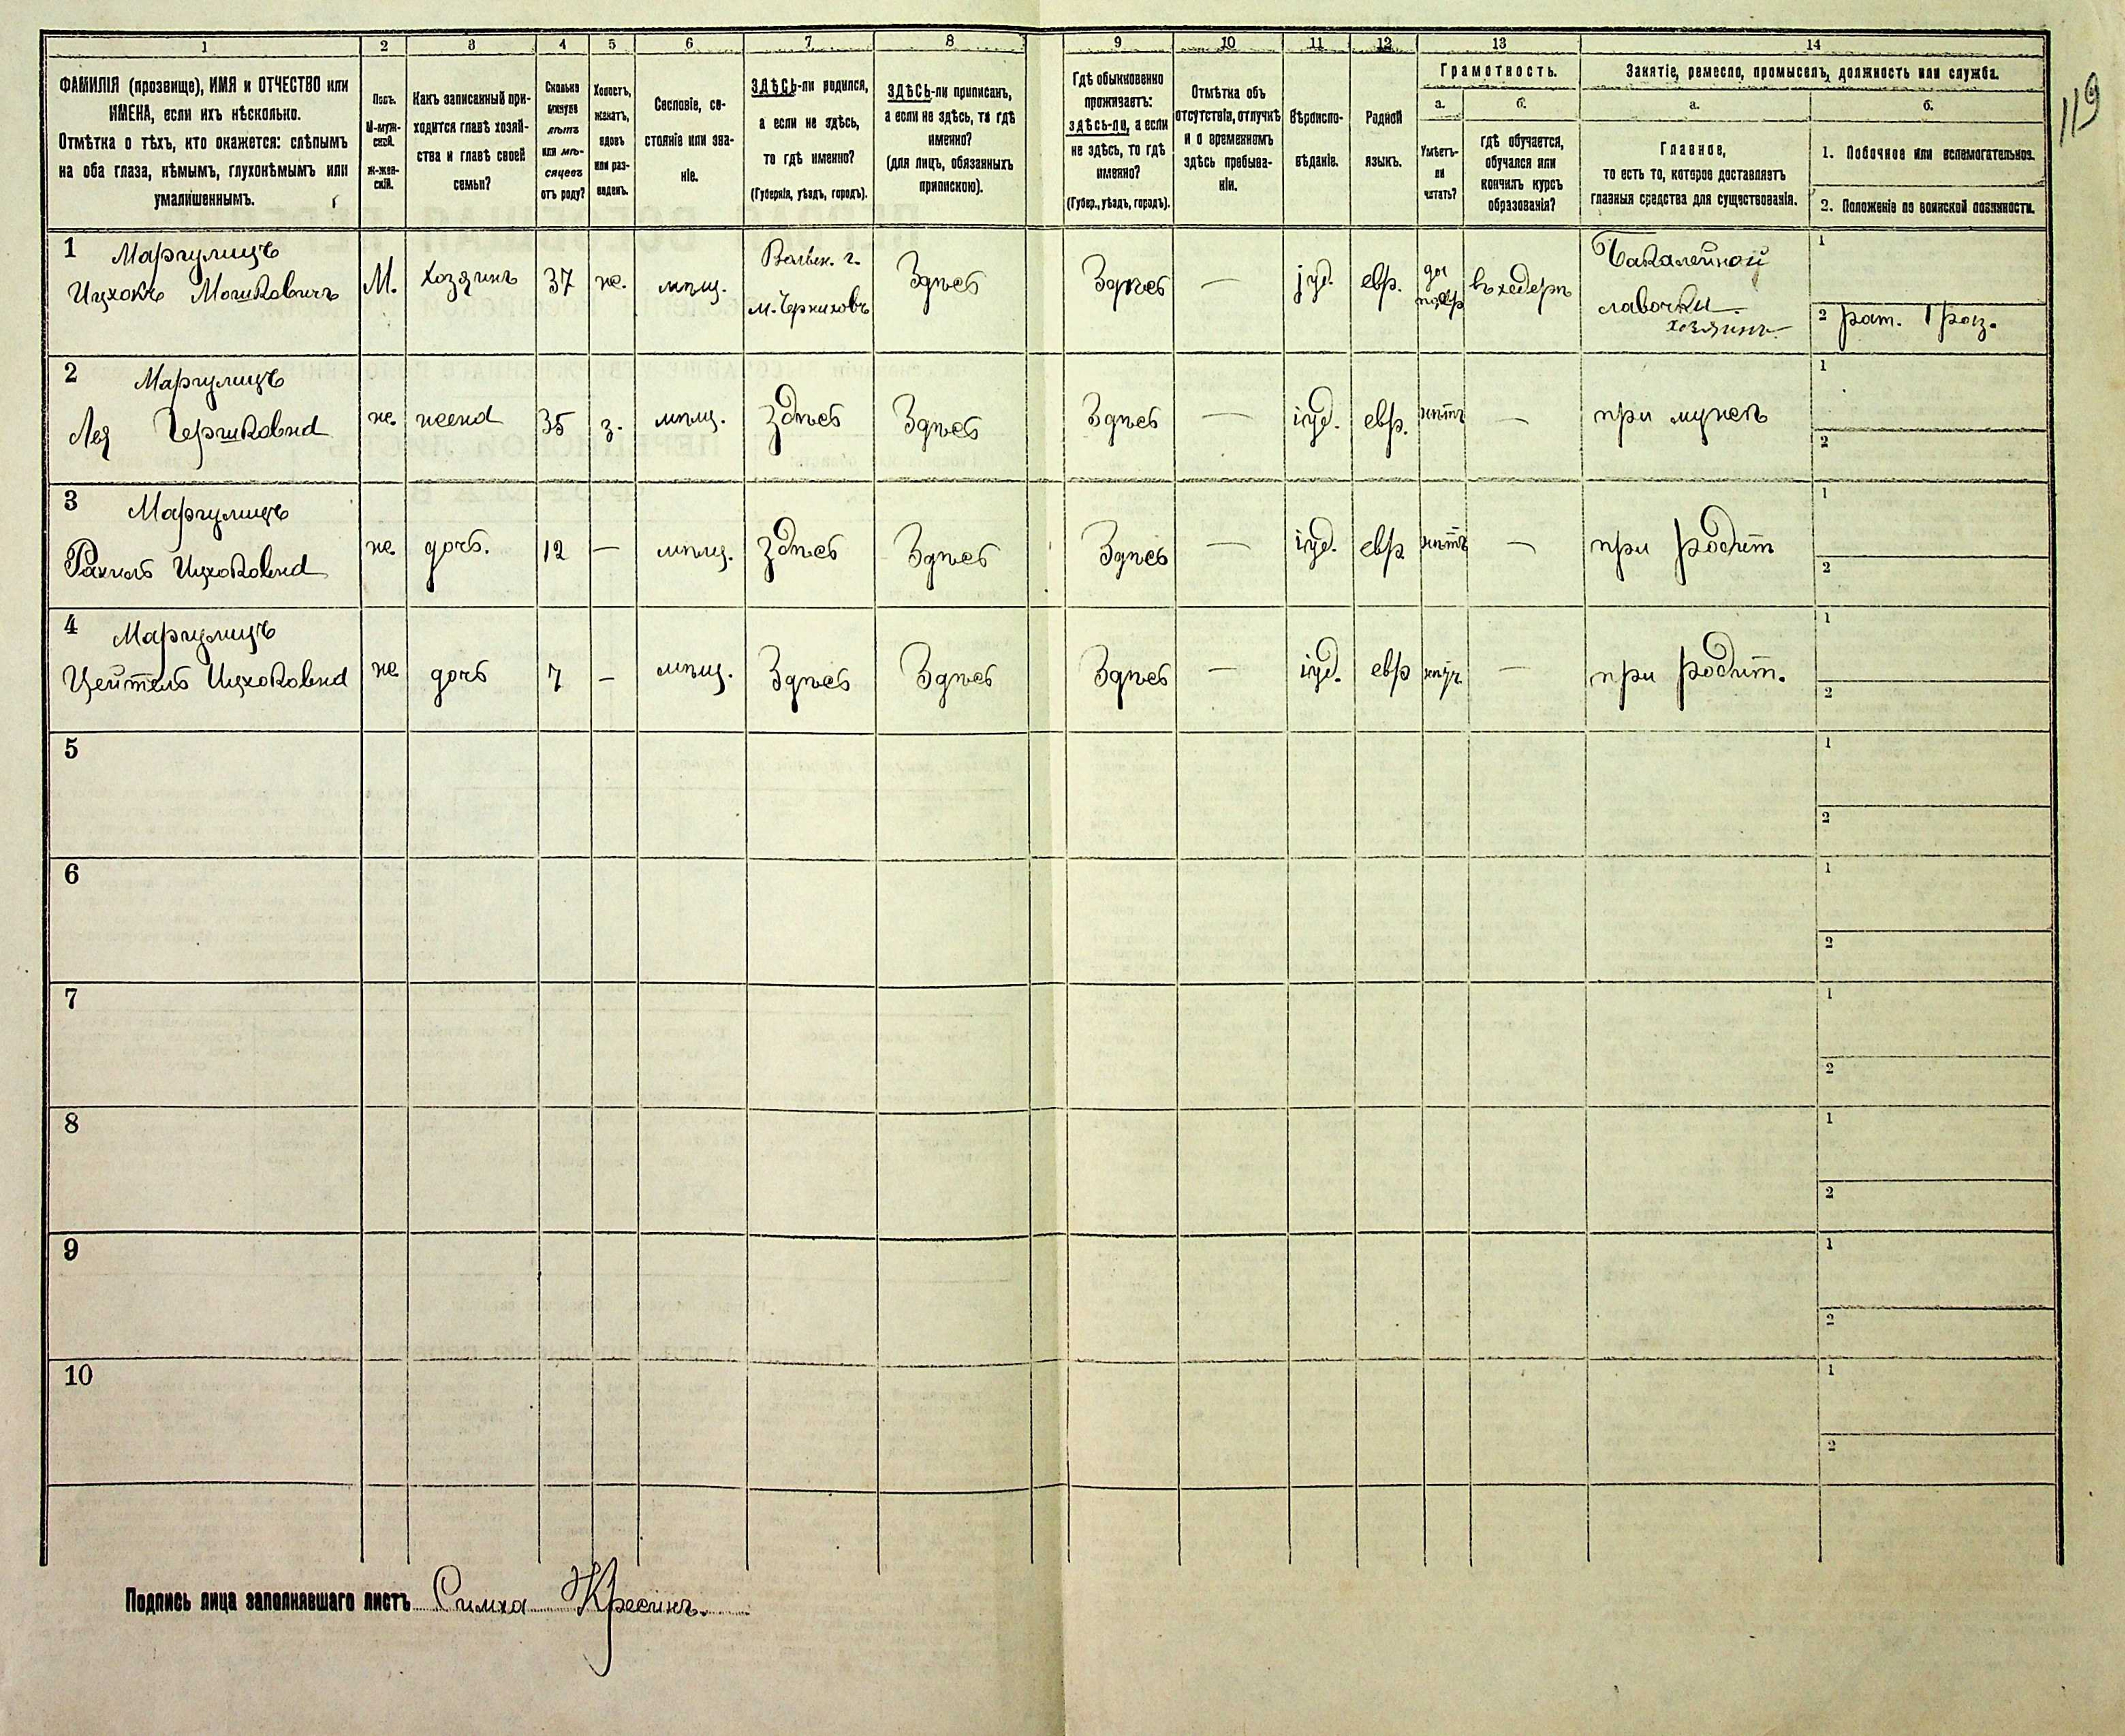 119
1 2 3 4 5 6 7 8 9 10 11 12 13 14
ФАМИЛІЯ (прозвище), ИМЯ и ОТЧЕСТВО или
ИМЕНА, если ихъ нѣсколько.
Отмѣтка о тѣхъ, кто окажется: слѣпымъ
на оба глаза, нѣмымъ, глухонѣмымъ или
умалишеннымъ.
Полъ.
М-муж-
ской.
Ж-жен-
скій.
Какъ записанный при-
ходится главѣ хозяй-
ства и главѣ своей
семьи?
Сколько
минуло
лѣтъ
или мѣ-
сяцевъ
отъ роду?
Холостъ,
женатъ,
вдовъ
или раз-
веденъ.
Сословіе, со-
стояніе или зва-
ніе.
ЗДѢСЬ-ли родился,
а если не здѣсь,
то гдѣ именно?
(Губернія, уѣздъ, городъ).
ЗДѢСЬ-ли приписанъ,
а если не здѣсь, то гдѣ
именно?
(для лицъ, обязанныхъ
припискою).
Гдѣ обыкновенно
проживаетъ:
здѣсь-ли, а если
не здѣсь, то гдѣ
именно?
(Губер., уѣздъ, городъ).
Отмѣтка объ
отсутствіи, отлучкѣ
и о временномъ
здѣсь пребыва-
ніи.
Вѣроиспо-
вѣданіе.
Родной
языкъ.
Грамотность.
а.
Умѣетъ-
ли
читать?
б.
гдѣ обучается,
обучался или
кончилъ курсъ
образованія?
Занятіе, ремесло, промыселъ, должность или служба.
а.
Главное,
то есть то, которое доставляетъ
главныя средства для существованія.
б.
1. Побочное или вспомогательное.
2. Положеніе по воинской повинности.
1 Маргулицъ
Ицхокъ Мошковичъ
М.
хозяинъ
37
ж.
мѣщ.
Волын. г.
м. Черниховъ
Здѣсь
Здѣсь
—
іуд.
евр.
да
въ хедерѣ
Бакалейной
лавочки
хозяинъ
1
2 рат. 1 раз.
2 Маргулицъ
Лея Гершковна
ж.
жена
35
з.
мѣщ.
здѣсь
Здѣсь
Здѣсь
—
іуд.
евр.
нѣтъ
—
при мужѣ
1
2
3 Маргулицъ
Рахиль Ицховна
ж.
дочь.
12
—
мѣщ.
здѣсь
Здѣсь
Здѣсь
—
іуд.
евр
нѣтъ
—
при родит
1
2
4 Маргулицъ
Цейтель Ицховна
ж
дочь
7
—
мѣщ.
Здѣсь
Здѣсь
Здѣсь
—
іуд.
евр
—
при родит.
1
2
5
1
2
6
1
2
7
1
2
8
1
2
9
1
2
10
1
2
Подпись лица заполнявшаго листъ Симха Кресинъ.